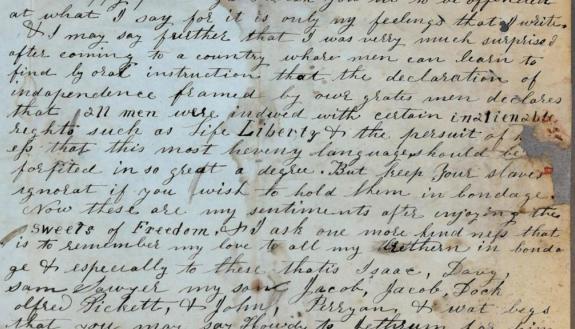 at what I say for it is only my feelings that I write
& I may say further that I was verry much surprised
after coming to a country whare men can learn to
find by oral instruction that the declaration of
independence framed by our grates men declares
that all men were indued with certain inalienable
rights such as Life Liberty & the persuit of
ess that this most hevenly language should be
forfited in so great a degree. But keep your slaves
ignorat if you wish to hold them in bondage.
Now these are my sentiments after enjoying the
sweets of Freedom, & I ask one more kindness that
is to remember my love to all my brethern in bonda
ge & especially to these thatis Isaac, Davy,
Sam Sawyer my son Jacob, Jacob, Dock
olfred Pickett, & John, Perryan, & wat begs
that you may say Howdy to